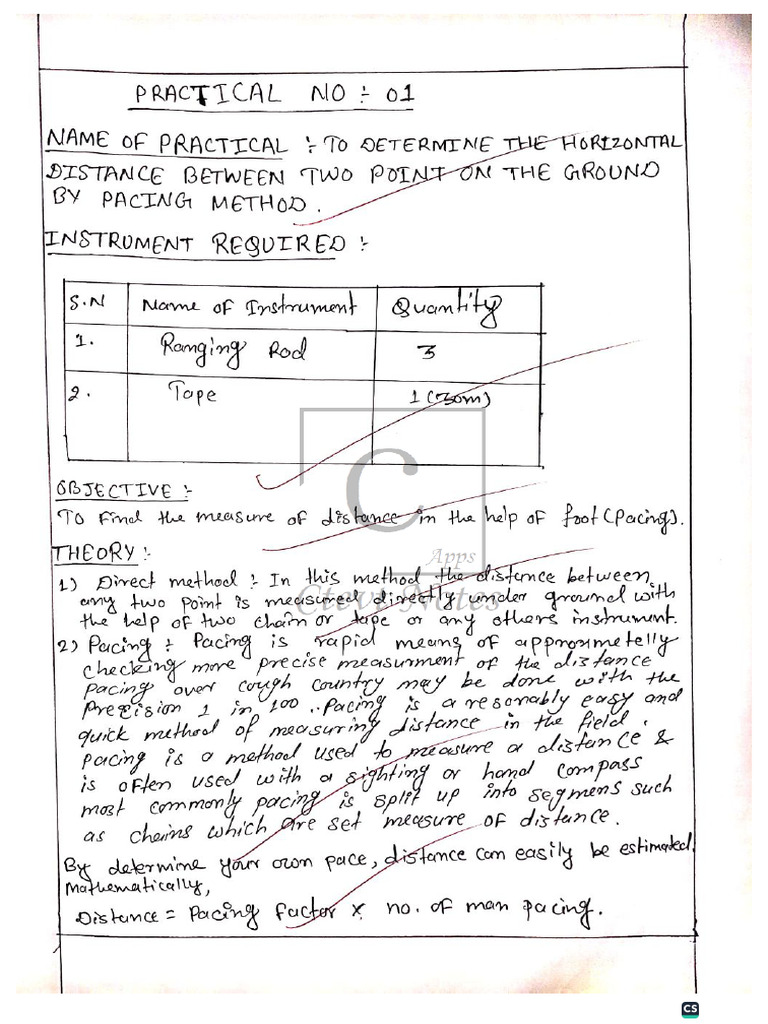 PRACTICAL NO :- 01
NAME OF PRACTICAL :- TO DETERMINE THE HORIZONTAL
DISTANCE BETWEEN TWO POINT ON THE GROUND
BY PACING METHOD.
INSTRUMENT REQUIRED :-
S.N Name of Instrument Quantity
1. Ranging Rod 3
2. Tape 1 (30m)
C
Apps
Ctevt Notes
OBJECTIVE :-
To Find the measure of distance in the help of foot (Pacing).
THEORY :-
1) Direct method :- In this method the distance between
any two point is measured directly under ground with
the help of two chain or tape or any others instrument.
2) Pacing :- Pacing is rapid means of approxmetelly
checking more precise measurment of the distance
pacing over cough country may be done with the
Precision 1 in 100 . Pacing is a resonably easy and
quick method of measuring distance in the field.
pacing is a method used to measure a distance &
is often used with a sighting or hand compass
most commonly pacing is split up into segmens such
as cheins which are set measure of distance.
By determine your own pace, distance can easily be estimated.
Mathematically,
Distance = Pacing factor x no. of man pacing.
CS